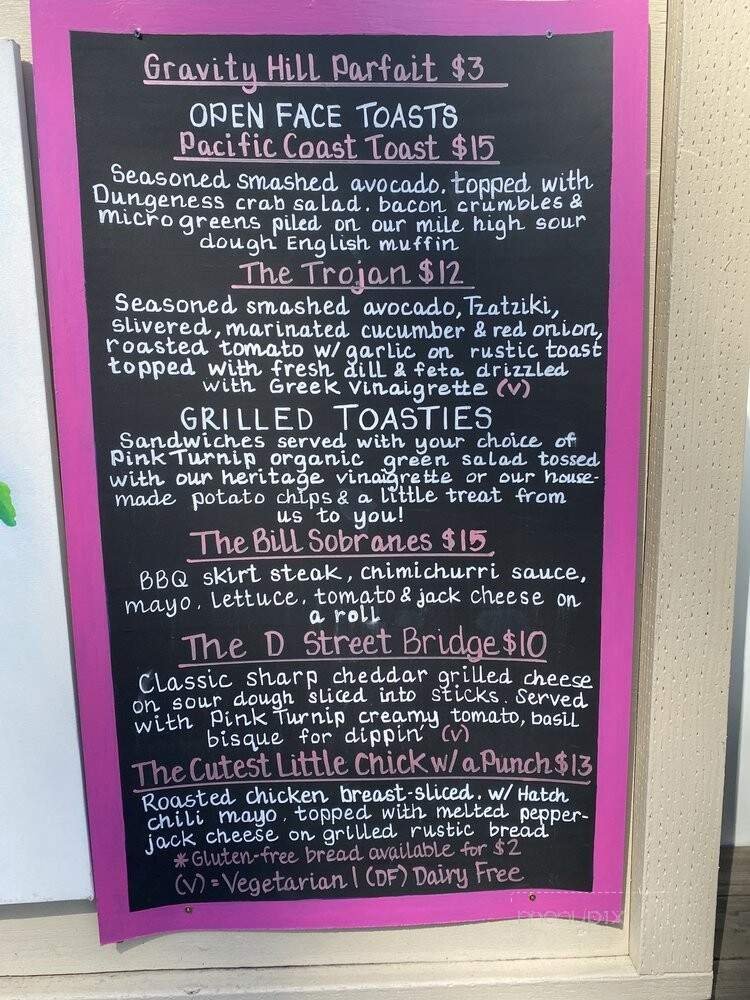 Gravity Hill Parfait $3
OPEN FACE TOASTS
Pacific Coast Toast $15
Seasoned smashed avocado, topped with
Dungeness crab salad, bacon crumbles &
micro greens piled on our mile high sour
dough English muffin
The Trojan $12
Seasoned smashed avocado, Tzatziki,
slivered, marinated cucumber & red onion,
roasted tomato w/ garlic on rustic toast
topped with fresh dill & feta drizzled
with Greek Vinaigrette (V)
GRILLED TOASTIES
Sandwiches served with your choice of
Pink Turnip organic green salad tossed
with our heritage vinaigrette or our house-
made potato chips & a little treat from
us to you!
The Bill Sobranes $15
BBQ skirt steak, chimichurri sauce,
mayo, lettuce, tomato & jack cheese on
a roll
The D Street Bridge $10
Classic sharp cheddar grilled cheese
on sour dough sliced into sticks. Served
with Pink Turnip creamy tomato, basil
bisque for dippin' (V)
The Cutest Little Chick w/ a Punch $13
Roasted chicken breast-sliced, w/ Hatch
chili mayo, topped with melted pepper-
jack cheese on grilled rustic bread
*Gluten-free bread available for $2
(V) = Vegetarian | (DF) Dairy Free